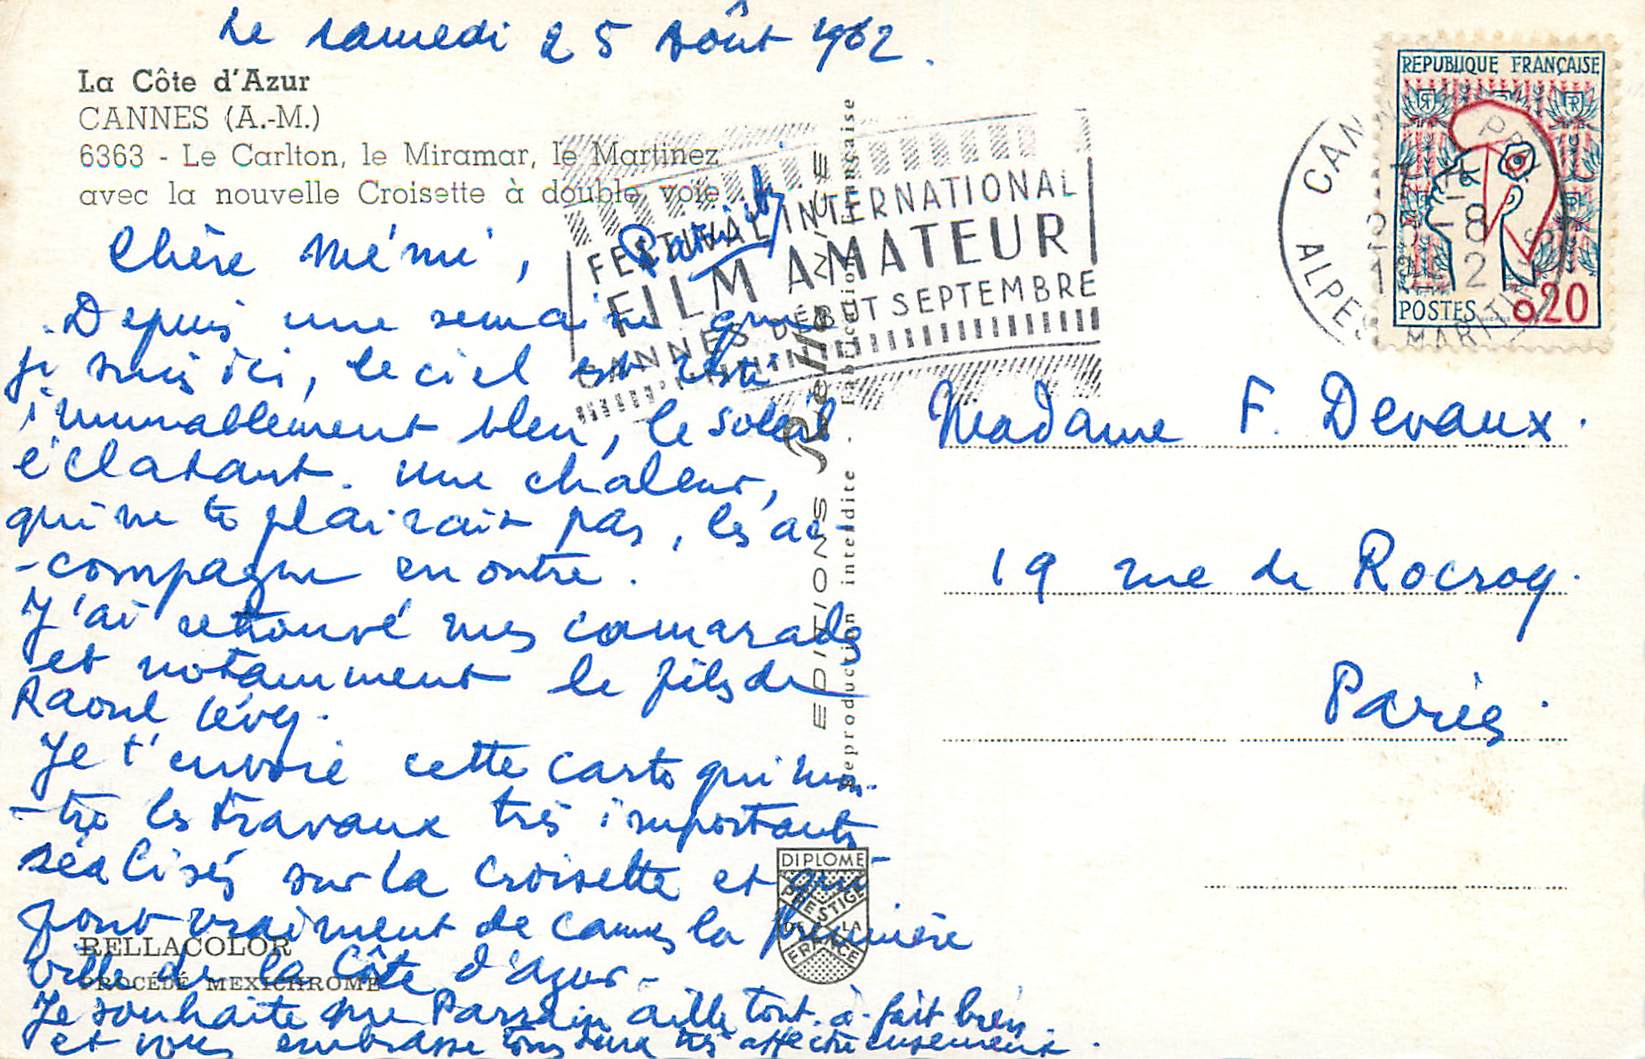 Le samedi 25 Août 1962.
La Côte d'Azur
CANNES (A.-M.)
6363 - Le Carlton, le Miramar, le Martinez
avec la nouvelle Croisette à double voie
Chère Mémé,
Depuis une semaine que
je suis ici, le ciel est resté
immuablement bleu, le soleil
éclatant. Une chaleur,
qui ne te plairait pas, les ac-
-compagne en outre.
J'ai retrouvé mes camarades
et notamment le fils de
Raoul Lévy.
Je t'envoie cette carte qui mon-
-tre les travaux très importants
réalisés sur la Croisette et qui
font vraiment de Cannes la première
ville de la Côte d'Azur-
Je souhaite que Parrain aille tout-à-fait bien.
et vous embrasse tous deux très affectueusement.
RELLACOLOR
PROCÉDÉ MEXICHROME
FESTIVAL INTERNATIONAL
FILM AMATEUR
CANNES DÉBUT SEPTEMBRE
EDITIONS Rella NICE
Reproduction interdite . Fabrication Française
DIPLOME
PRESTIGE
DE LA
FRANCE
REPUBLIQUE FRANÇAISE
POSTES 0,20
CANNES
ALPES MARITIMES
Madame F. Devaux.
19 rue de Rocroy.
Paris.